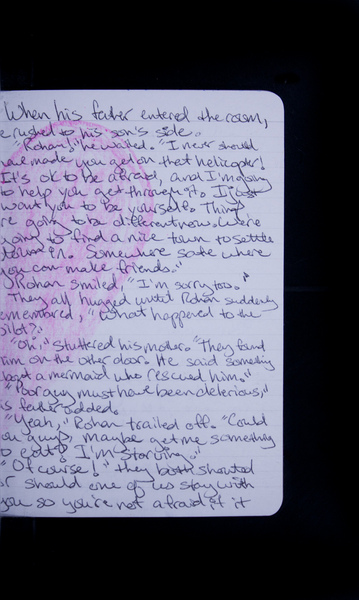 When his father entered the room,
e rushed to his son's side.
"Rohan!" he wailed. "I never should
have made you get on that helicopter!
It's ok to be afraid, and I'm going
to help you get through it. I just
want you to be yourself. Things
re going to be different now. We're
going to find a nice town to settle
down in. Somewhere safe where
you can make friends."
Rohan smiled. "I'm sorry too."
They all hugged until Rohan suddenly
emembered, "What happened to the
pilot?"
"Oh," stuttered his mother. "They found
him on the other door. He said something
about a mermaid who rescued him."
"Poor guy must have been delerious,"
is father added.
"Yeah," Rohan trailed off. "Could
ou guys, maybe get me something
to eat? I'm starving."
"Of course!" they both shouted
or should one of us stay with
you so you're not afraid if it